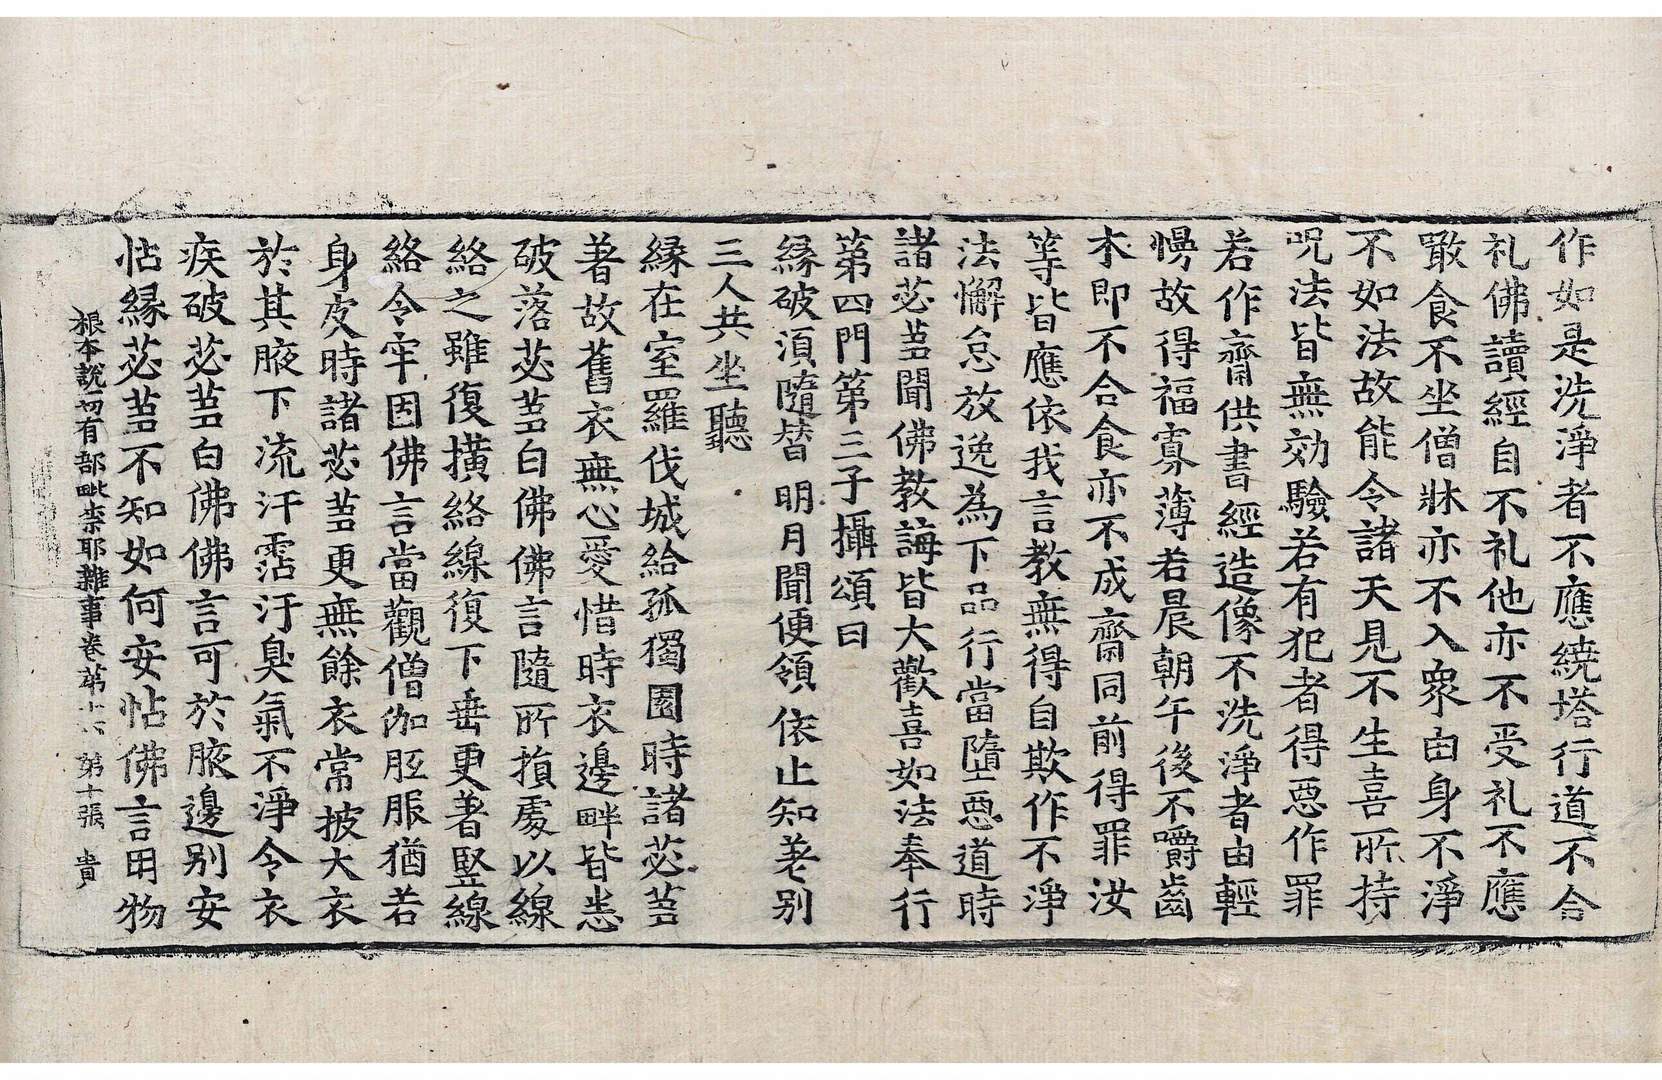 作如是洗淨者不應繞塔行道不合
礼佛讀經自不礼他亦不受礼不應
噉食不坐僧牀亦不入衆由身不淨
不如法故能令諸天見不生喜所持
呪法皆無効驗若有犯者得惡作罪
若作齋供書經造像不洗淨者由輕
慢故得福寡薄若晨朝午後不嚼齒
木即不合食亦不成齋同前得罪汝
等皆應依我言教無得自欺作不淨
法懈怠放逸為下品行當墮惡道時
諸苾芻聞佛教誨皆大歡喜如法奉行
第四門第三子攝頌曰
緣破湏隨替明月聞便領依止知差別
三人共坐聽
緣在室羅伐城給孤獨園時諸苾芻
著故舊衣無心愛惜時衣邊畔皆悉
破落苾芻白佛佛言隨所損處以線
絡之雖復橫絡線復下垂更著竪線
絡令牢因佛言當觀僧伽胝服猶若
身皮時諸苾芻更無餘衣常披大衣
於其腋下流汗霑汙臭氣不淨令衣
疾破苾芻白佛佛言可於腋邊別安
怗緣苾芻不知如何安怗佛言用物
根本說一切有部毗柰耶雜事卷第十六 第十張 貴